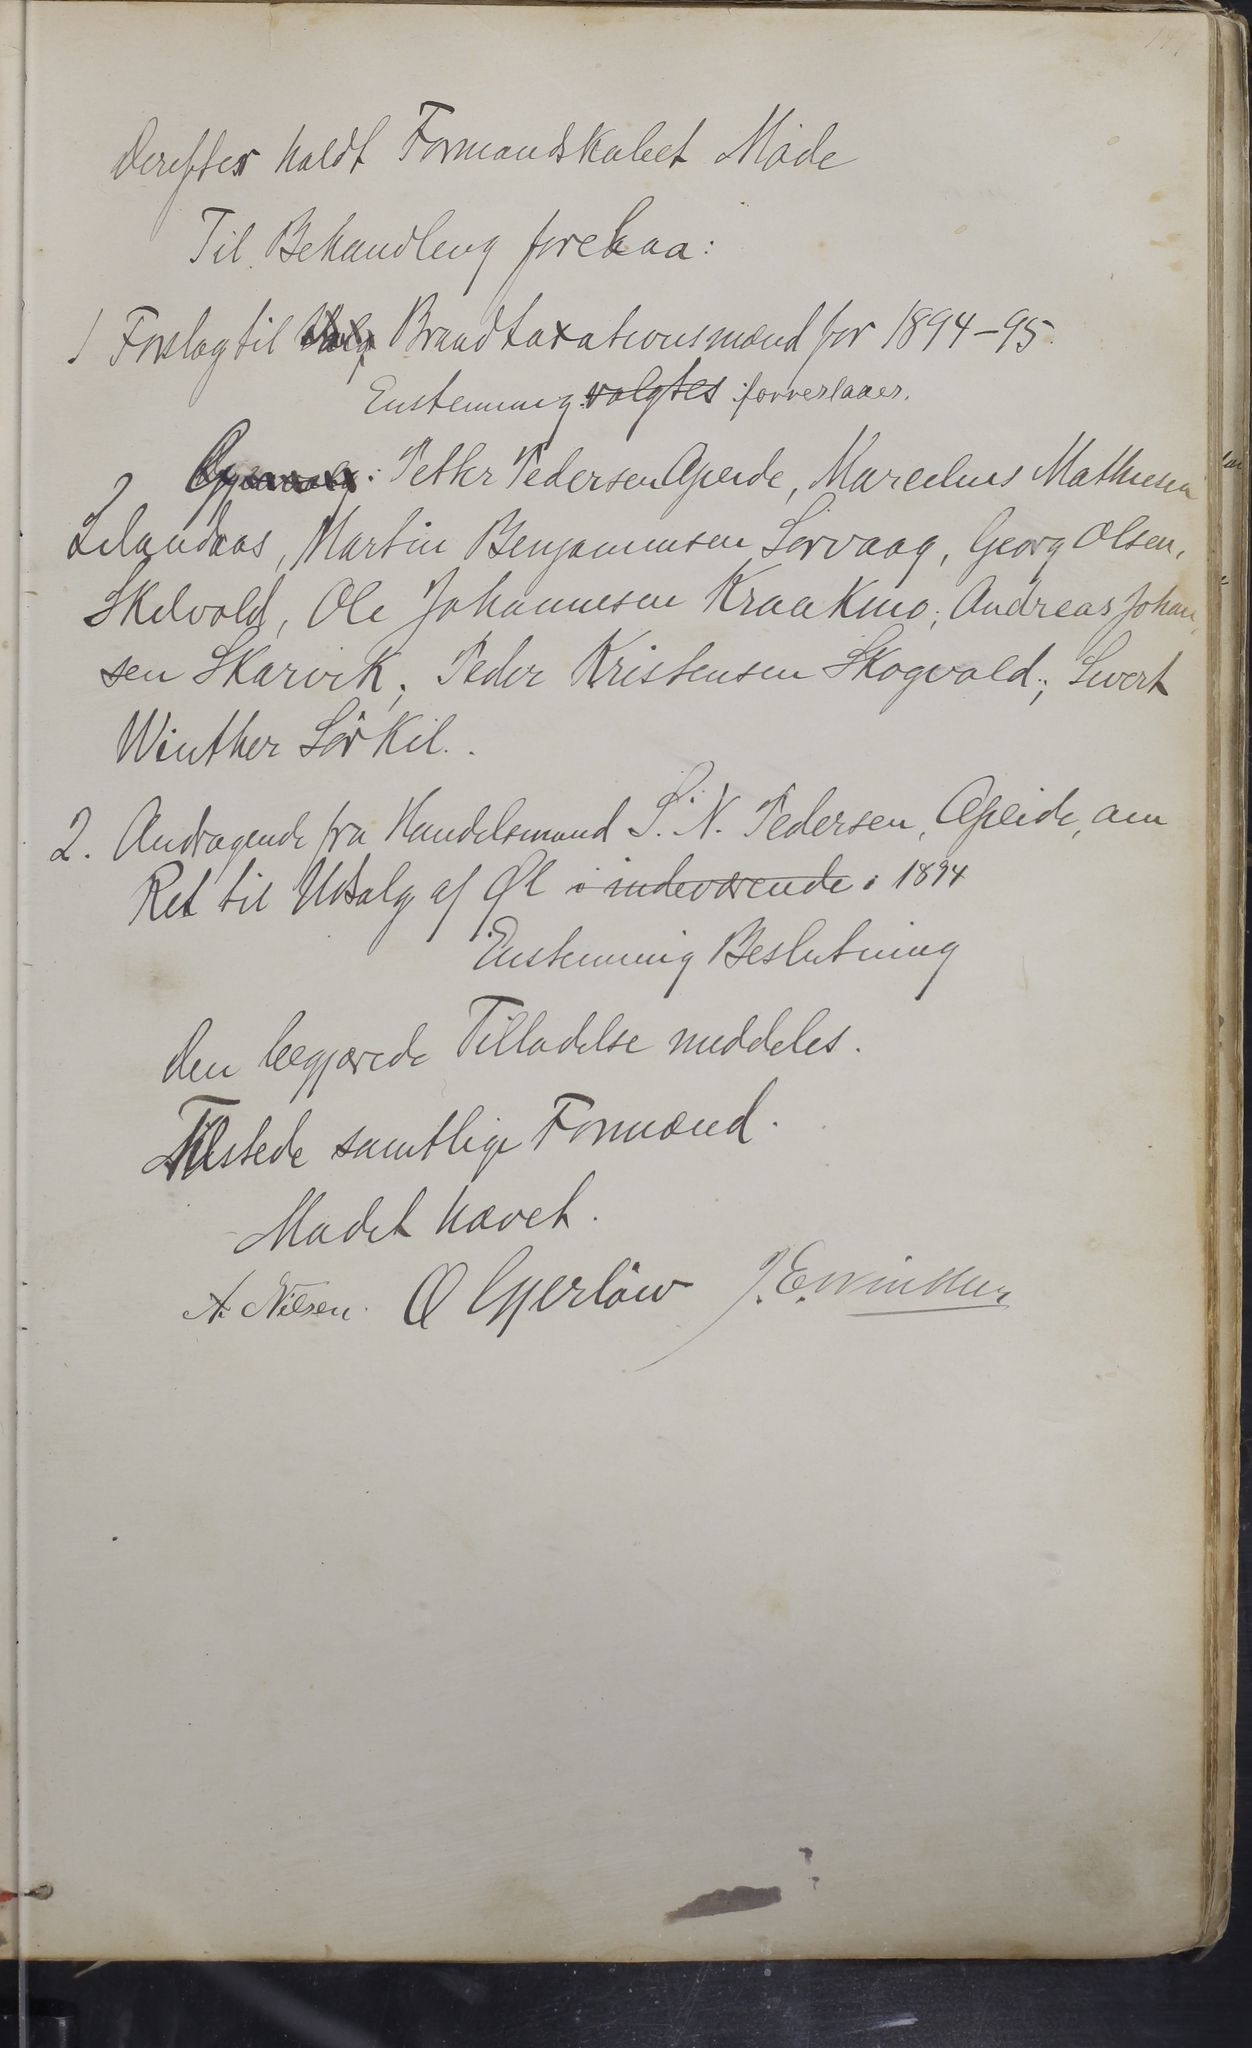 Derefter holdt Formandskabet Möde
Til Behandling forelaa:
1 Forslag til Valg Brandtaxationsmænd for 1894-95.
Enstemmig valgtes foreslaaes.
: Petter Pedersen Opeide, Marcelius Mathiesen
Lilandaas, Martin Benjaminsen Sörvaag, Georg Olsen,
Skilvold, Ole Johannesen Kraakmo, Andreas Johan
sen Skarvik, Peder Kristensen Skogvold, Sivert
Winther Sörkil.
2. Andragende fra Handelsmand S. N. Pedersen, Opeide, om
Ret til Udsalg af Øl i indeværende i 1894
Enstemmig Beslutning
Den begjærede Tilladelse meddeles.
Tilstede samtlige Formænd.
Mødet hævet.
A. Nilsen. O Gjerlöw J. E. Winther